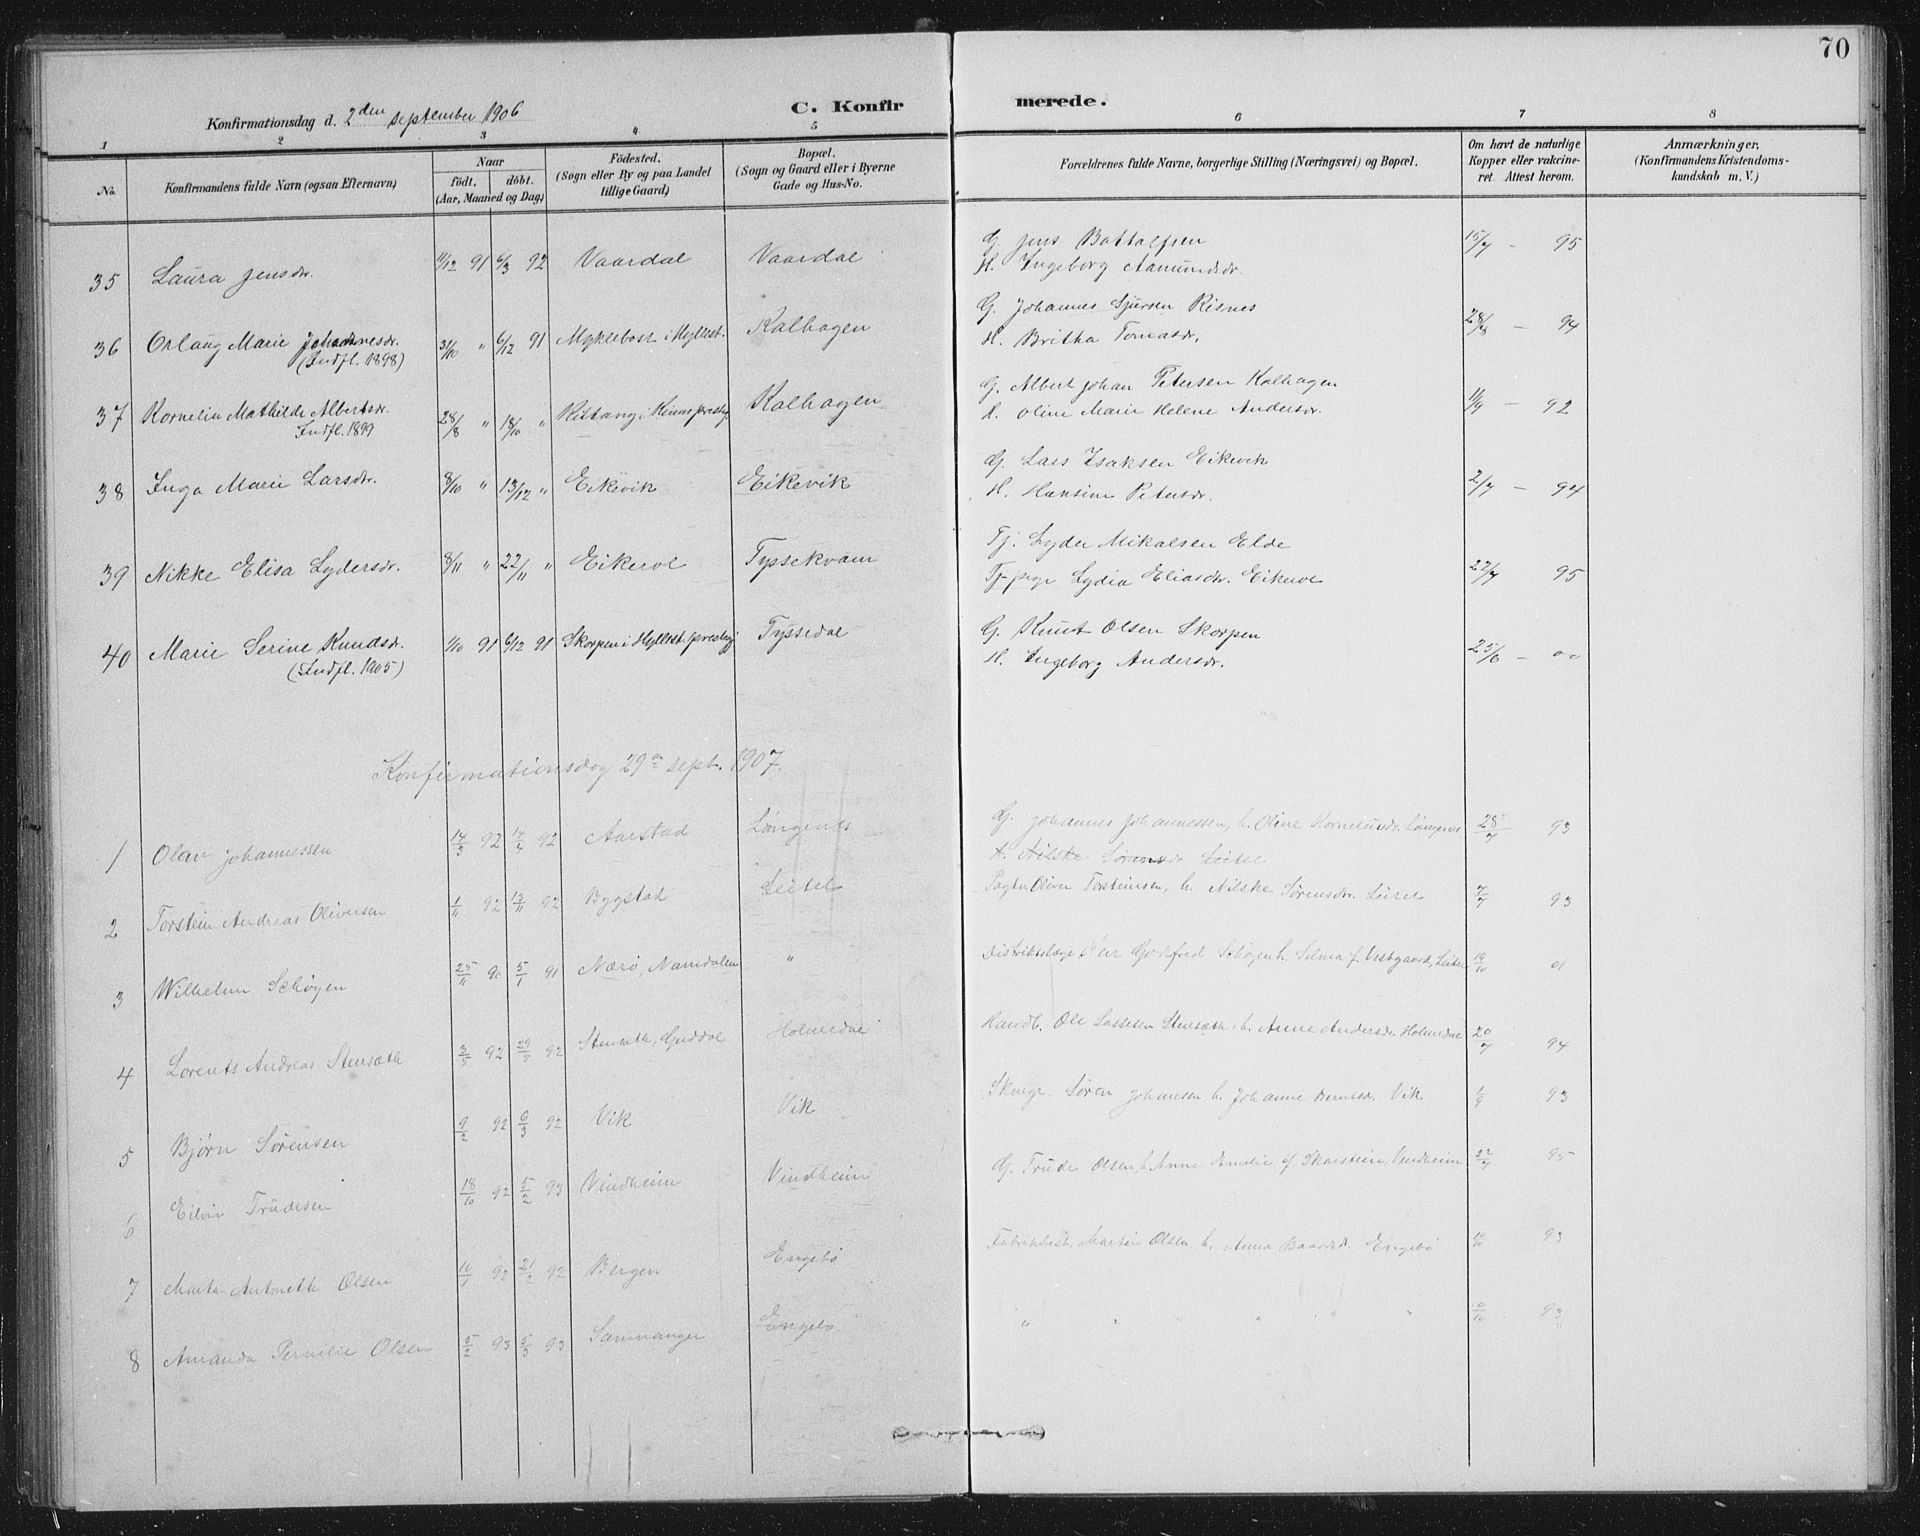 70
Konfirmationsdag d. 2den September 1906
C. Konfirmerede.
1 2 3 4 5 6 7 8
No.
Konfirmandens fulde Navn (ogsaa Efternavn)
Naar
födt. döbt.
(Aar, Maaned og Dag)
Födested.
(Sogn eller By og paa Landet
tillige Gaard)
Bopæl.
(Sogn og Gaard eller i Byerne
Gade og Hus-No.
Forældrenes fulde Navne, borgerlige Stilling (Næringsvei) og Bopæl.
Om havt de naturlige
Kopper eller vakcine-
ret. Attest herom.
Anmærkninger.
(Konfirmandens Kristendoms-
kundskab m. V.)
35 Laura Jensdr. 11/12 91 6/3 92 Vaardal Vaardal G. Jens Bottolfsen 15/7 - 95
H. Ingeborg Aamundsdr.
36 Orlaug Marie Johannesdr. 31/10 " 6/12 91 Myklebost i Hyllest. Kalhagen G. Johannes Sjursen Risnes 28/8 - 94
(Indfl. 1898) H. Britha Tomasdr.
37 Kornelia Mathilde Albertsdr. 28/8 " 18/10 " i Kinns presteg. Kalhagen G. Albert Johan Petersen Kalhagen 1/9 - 92
Indfl. 1899 H. Oline Marie Helene Andersdr.
38 Inga Marie Larsdr. 8/10 " 13/12 " Eikevik Eikevik G. Lars Isaksen Eikevik 2/7 - 94
H. Hansine Petersdr.
39 Nikke Elisa Lydersdr. 8/11 " 22/11 " Eikevol Tyssekvam Tj. Lyder Mikalsen Elde 22/7 95
Tj-pige Lydia Eliasdr. Eikevol
40 Marie Serine Knudsdr. 1/10 91 6/12 91 Skorpen i Hyllest. presteg. Tyssedal G. Knut Olsen Skorpen 25/6 - 00
(Indfl. 1905) H. Ingeborg Andersdr.
Konfirmationsdag 29de sept. 1907.
1 Olav Johannessen 14/3 92 92 Aarstad Längenes G. Johannes Johannessen, h. Oline Korneliusdr. Längenes 28/7 93
H. Nilske Sørensdr. Leitel
2 Torstein Andreas Oliversen 1/11 92 13/11 92 Bygstad Leitel Oliver Torsteinsen, h. Nilske Sørensdr. Leitel 7/7 93
3 Wilhelm Schøyen 25/11 90 5/1 91 Nærø, Namdalen " Distriktslæge Godtfred Schøyen h. Selma f. Vestgaard, Leitel 19/10 01
4 Lorents Andreas Stensæth 3/5 92 29/5 92 Stensæth, Guddal Holmedal Handl. Ole Lassesen Stensæth, h. Anne Andersdr. Holmedal 20/7 94
5 Bjørn Sørensen 9/2 92 6/3 92 Vik Vik Søren Johansen, h. Johanne Berntsdr. Vik 1/9 93
6 Eilvin Trudesen 18/10 92 5/2 93 Vindheim Vindheim G. Trude Olsen, h. Anne Emilie f. Skarstein, Vindheim 22/7 95
7 Marta Antonette Olsen 16/1 92 21/2 92 Bergen Engebö Fabrikbest. Martin Olsen, h. Anna Baardsd. Engebö 10/10 93
8 Amanda Pernilie Olsen 5/2 93 5/3 93 Samnanger Engebö " " " " " " 10/10 93